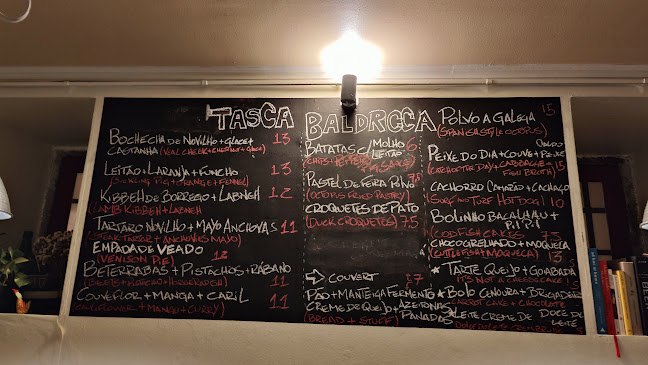 TASCA BALDRCCA
BOCHECHA DE NOVILHO + GLACE +
CASTANHA (VEAL CHEEK + CHESTNUT + GLACE) 13
LEITÃO + LARANJA + FUNCHO 13
(SUCKLING PIG + ORANGE + FENNEL)
KIBBEH DE BORREGO + LABNEH 12
(LAMB KIBBEH + LABNEH)
TARTARO NOVILHO + MAYO ANCHOVAS 11
(STEAK TARTAR + ANCHOVIES MAYO)
EMPADA DE VEADO 12
(VENISON PIE)
BETERRABAS + PISTACHOS + RÁBANO 11
COUVEFLOR + MANGA + CARIL 11
(CAULIFLOWER + MANGO + CURRY)
BATATAS C/ MOLHO 6
LEITÃO
PASTEL DE FEIRA POLVO
(OCTOPUS FRIED PASTRY)
CROQUETES DE PATO
(DUCK CROQUETES) 7.5
COUVERT
PÃO + MANTEIGA FERMENTO +
CREME DE QUEIJO + AZEITONAS
PANADAS
(BREAD + STUFF)
POLVO A GALEGA 15
(SPANISH STYLE OCTOPUS)
PEIXE DO DIA + COUVE + CALDO
PEIXE
(CATCH OF THE DAY + CABBAGE + 15
FISH BROTH)
CACHORRO CAMARÃO + CACHAÇO
SURF N TURF HOT DOG! 10
BOLINHO BACALHAU +
PIPI
(CODFISH CAKES)
CHOCO GRELHADO + MOQUECA
(CUTTLEFISH + MOQUECA) 13
TARTE QUEIJO + GOIABADA
IT'S NOT A CHEESECAKE
BOLO CENOURA + BRIGADEIRO
CARROT CAKE + CHOCOLATE
LEITE CREME DE DOCE DE
LEITE